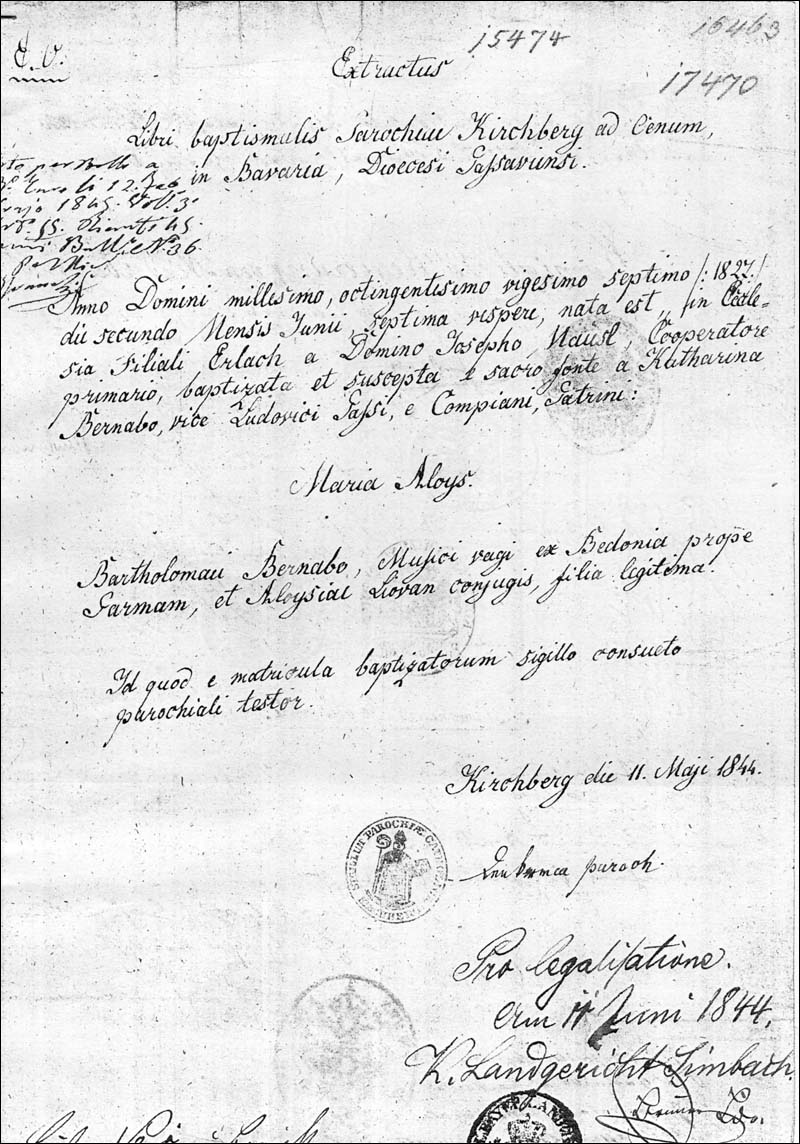 15474
16463
17470
Extractus
Libri baptismalis Parochiae Kirchberg ad Oenum,
in Bavaria, Dioecesi Passaviensi.
per Bollo a
li 12. Feb
1845. Vol. 3
45.
No. 36
Anno Domini millesimo, octingentisimo vigesimo septimo /: 1827 :/
die secundo Mensis Junii, septima vespere, nata est, in Eccle-
sia Filiali Erlach a Domino Josepho Nausl, Cooperatore
primario, baptizata et suscepta e sacro fonte a Katharina
Bernabo, vice Ludovici Passi, e Compiani, Patrini:
Maria Aloys.
Bartholomaei Bernabo, Musici vagi ex Bedonia prope
Parmam, et Aloysiae Liovan conjugis, filia legitima.
Id quod e matricula baptizatorum sigillo consueto
parochiali testor.
Kirchberg die 11. Maji 1844.
SIGILLUM PAROCHIÆ
paroch.
Pro legalisatione.
Am 11 Juni 1844.
K. Landgericht Simbach.